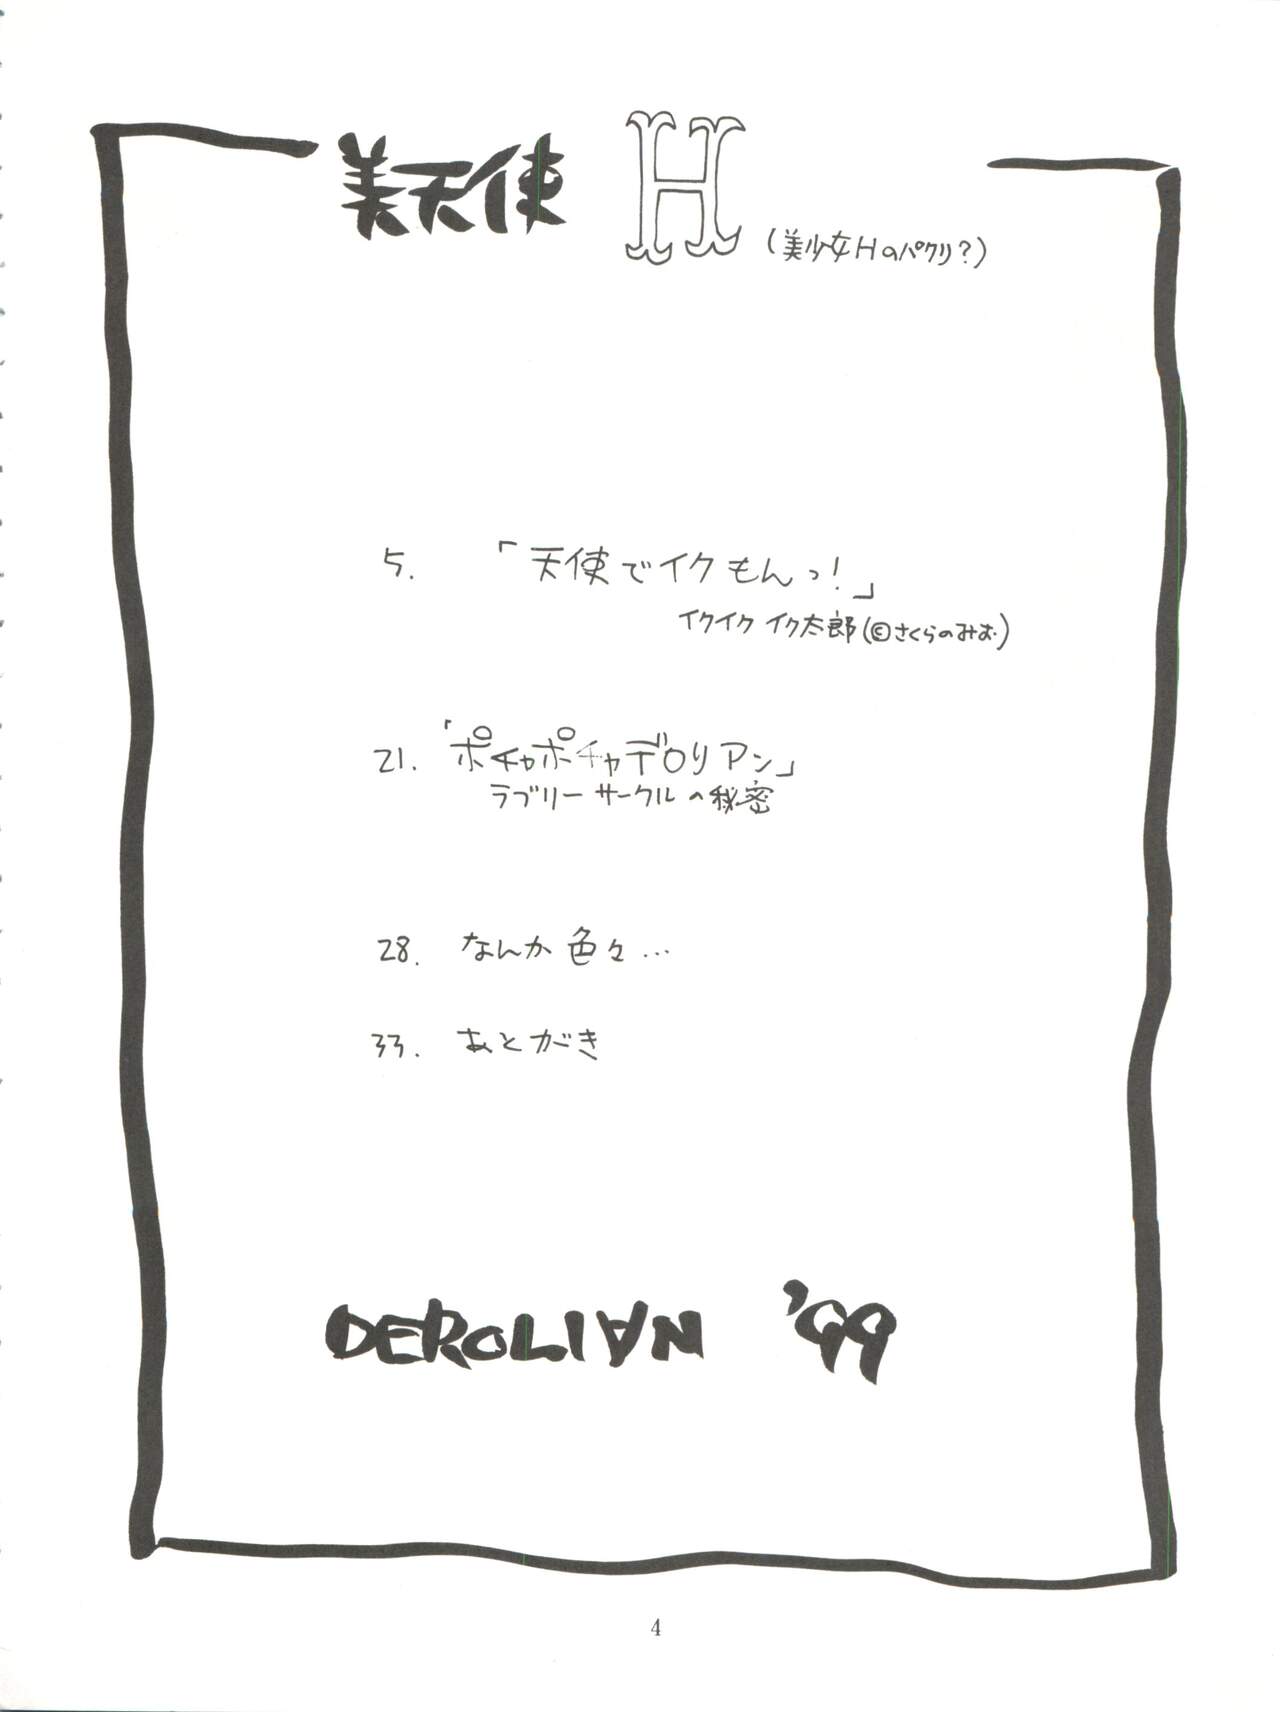 美天使 H (美少女Hのパクリ?)
5. 「天使でイクもんっ!」
イクイク イク太郎(©さくらのみお)
21. 「ポチャポチャデロリアン」
ラブリーサークルの秘密
28. なんか色々...
33. あとがき
DEROLIAN '99
4